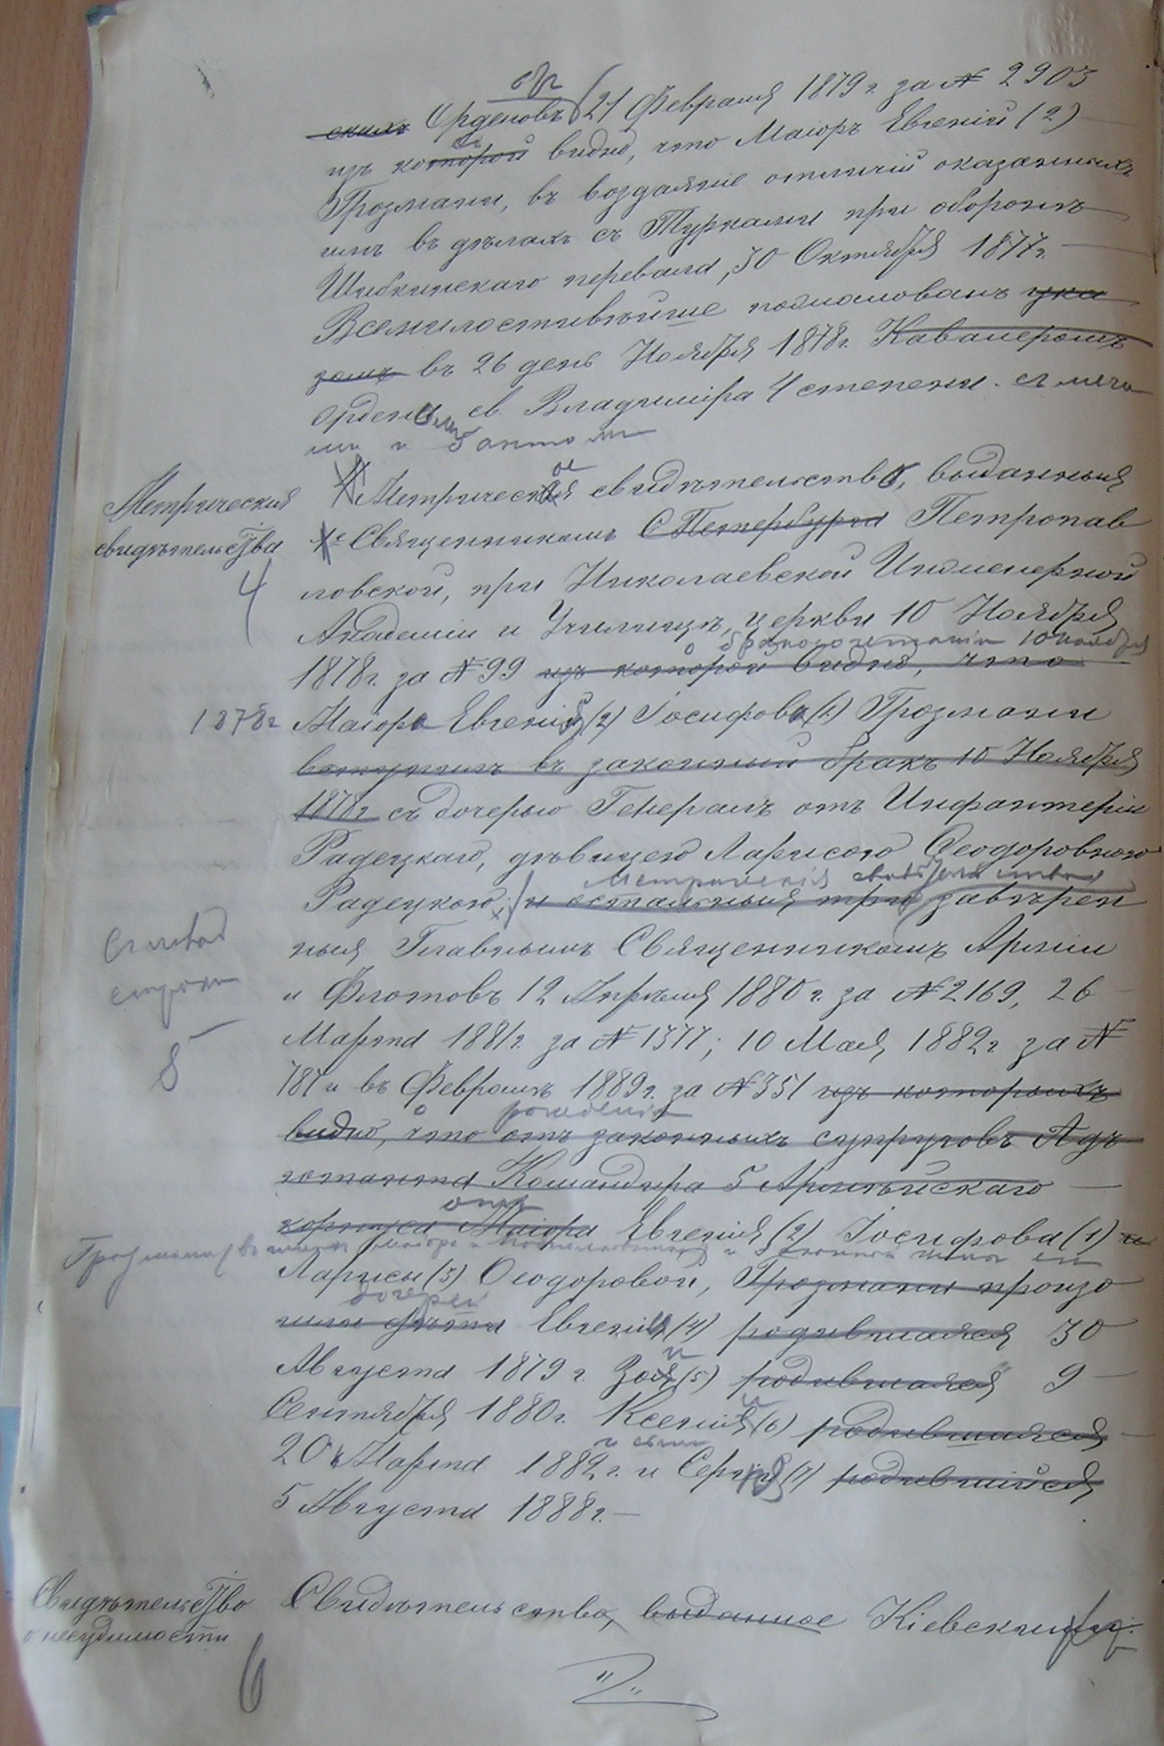 скихъ Орденовъ 21 Февраля 1879 г. за № 2903
изъ которой видно, что Маіоръ Евгеній (2)
Грозмани, въ воздаяніе отличій оказанныхъ
имъ въ дѣлахъ съ Турками при оборонѣ
Шибкинскаго перевала, 30 Октября 1877 г.
Всемилостивѣйше пожалованъ ука
зомъ въ 26 день Ноября 1878 г. Кавалеромъ
ордена св. Владиміра 4 степени. съ меча
ми и бантомъ
Метрическія
свидѣтельства
4
Метрическое свидѣтельство, выданныя
1-е Священникомъ С Петербурга Петропав
ловской, при Николаевской Инженерной
Академіи и Училищѣ, церкви 10 Ноября
о бракосочетаніи 10 ноября
1878 г. за № 99 изъ которой видно, что
1878 г
Маіора Евгенія (2) Іосифова (1) Грозмани
вступилъ въ законный бракъ 10 Ноября
1878 г. съ дочерью Генерала отъ Инфантеріи
Радецкаго, дѣвицею Ларисою Ѳеодоровною
Метрическія свидѣтельства
Радецкою; и остальныя три завѣрен
ныя Главнымъ Священникомъ Арміи
и Флотовъ 12 Апрѣля 1880 г. за № 2169, 26
Марта 1881 г. за № 1377; 10 Мая 1882 г за №
787 и въ Февралѣ 1889 г. за № 351 изъ которыхъ
Съ новой
строки
5
о рожденіи
видно, что отъ законныхъ супруговъ Адъ
ютанта Командира 5 Армѣйскаго
корпуса Маіора Евгенія (2) Іосифова (1) и
отъ
Грозмани
Ларисы (3) Ѳеодоровой, Грозмани произо
дочерей
шли дѣти Евгенія (4) родившаяся 30
Августа 1879 г. Зоя (5) родившаяся 9
Сентября 1880 г. Ксенія (6) родившаяся
и сына
20 Марта 1882 г. и Сергѣя (7) родившійся
5 Августа 1888 г.
Свидѣтельство
о несудимости
6
Свидѣтельство, выданное Кіевским